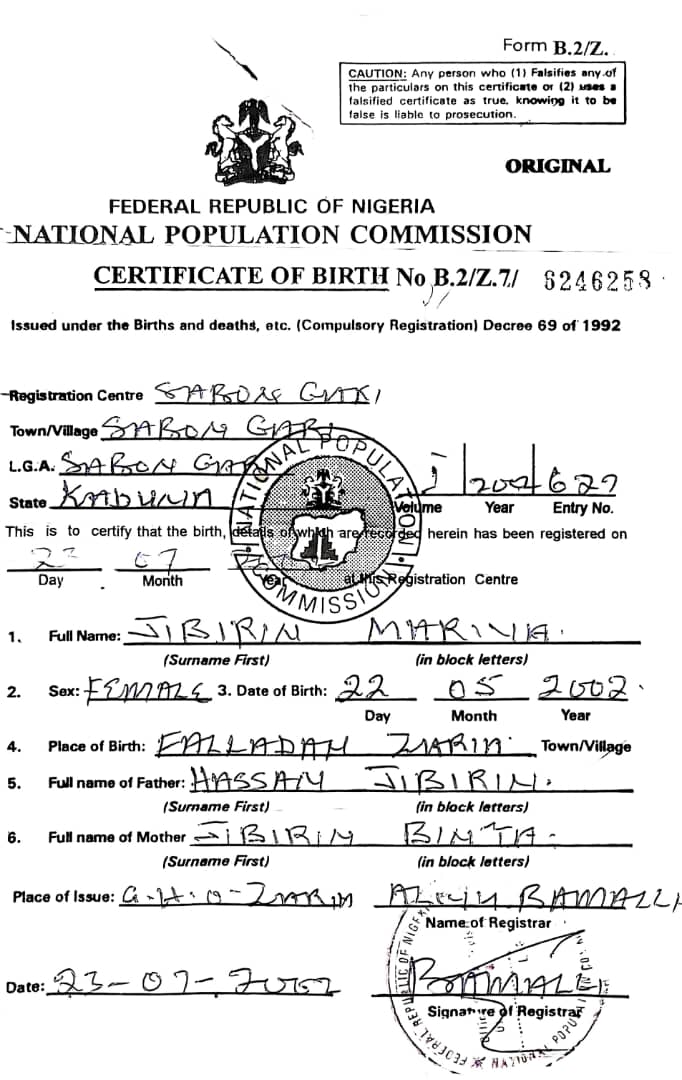 Form B.2/Z.
CAUTION: Any person who (1) Falsifies any of
the particulars on this certificate or (2) uses a
falsified certificate as true, knowing it to be
false is liable to prosecution.
ORIGINAL
FEDERAL REPUBLIC OF NIGERIA
NATIONAL POPULATION COMMISSION
CERTIFICATE OF BIRTH No B.2/Z.7/ 6246258
Issued under the Births and deaths, etc. (Compulsory Registration) Decree 69 of 1992
Registration Centre SABON GARI
Town/Village SABON GARI
L.G.A. SABON GAR
State KADUNA
2002 627
Volume Year Entry No.
NATIONAL POPULATION COMMISSION
This is to certify that the birth, details of which are recorded herein has been registered on
23 07
Day Month Year at this Registration Centre
1. Full Name: JIBIRIN MARIYA
(Surname First) (in block letters)
2. Sex: FEMALE 3. Date of Birth: 22 05 2002
Day Month Year
4. Place of Birth: FALLADAN ZARIA Town/Village
5. Full name of Father: HASSAN JIBIRIN
(Surname First) (in block letters)
6. Full name of Mother JIBIRIN BINTA
(Surname First) (in block letters)
Place of Issue: G.H.O-ZARIA ALIYU BAMALLI
Name of Registrar
Date: 23-07-2002 BAMALLI
Signature of Registrar
FEDERAL REPUBLIC OF NIGERIA
NATIONAL POPULATION